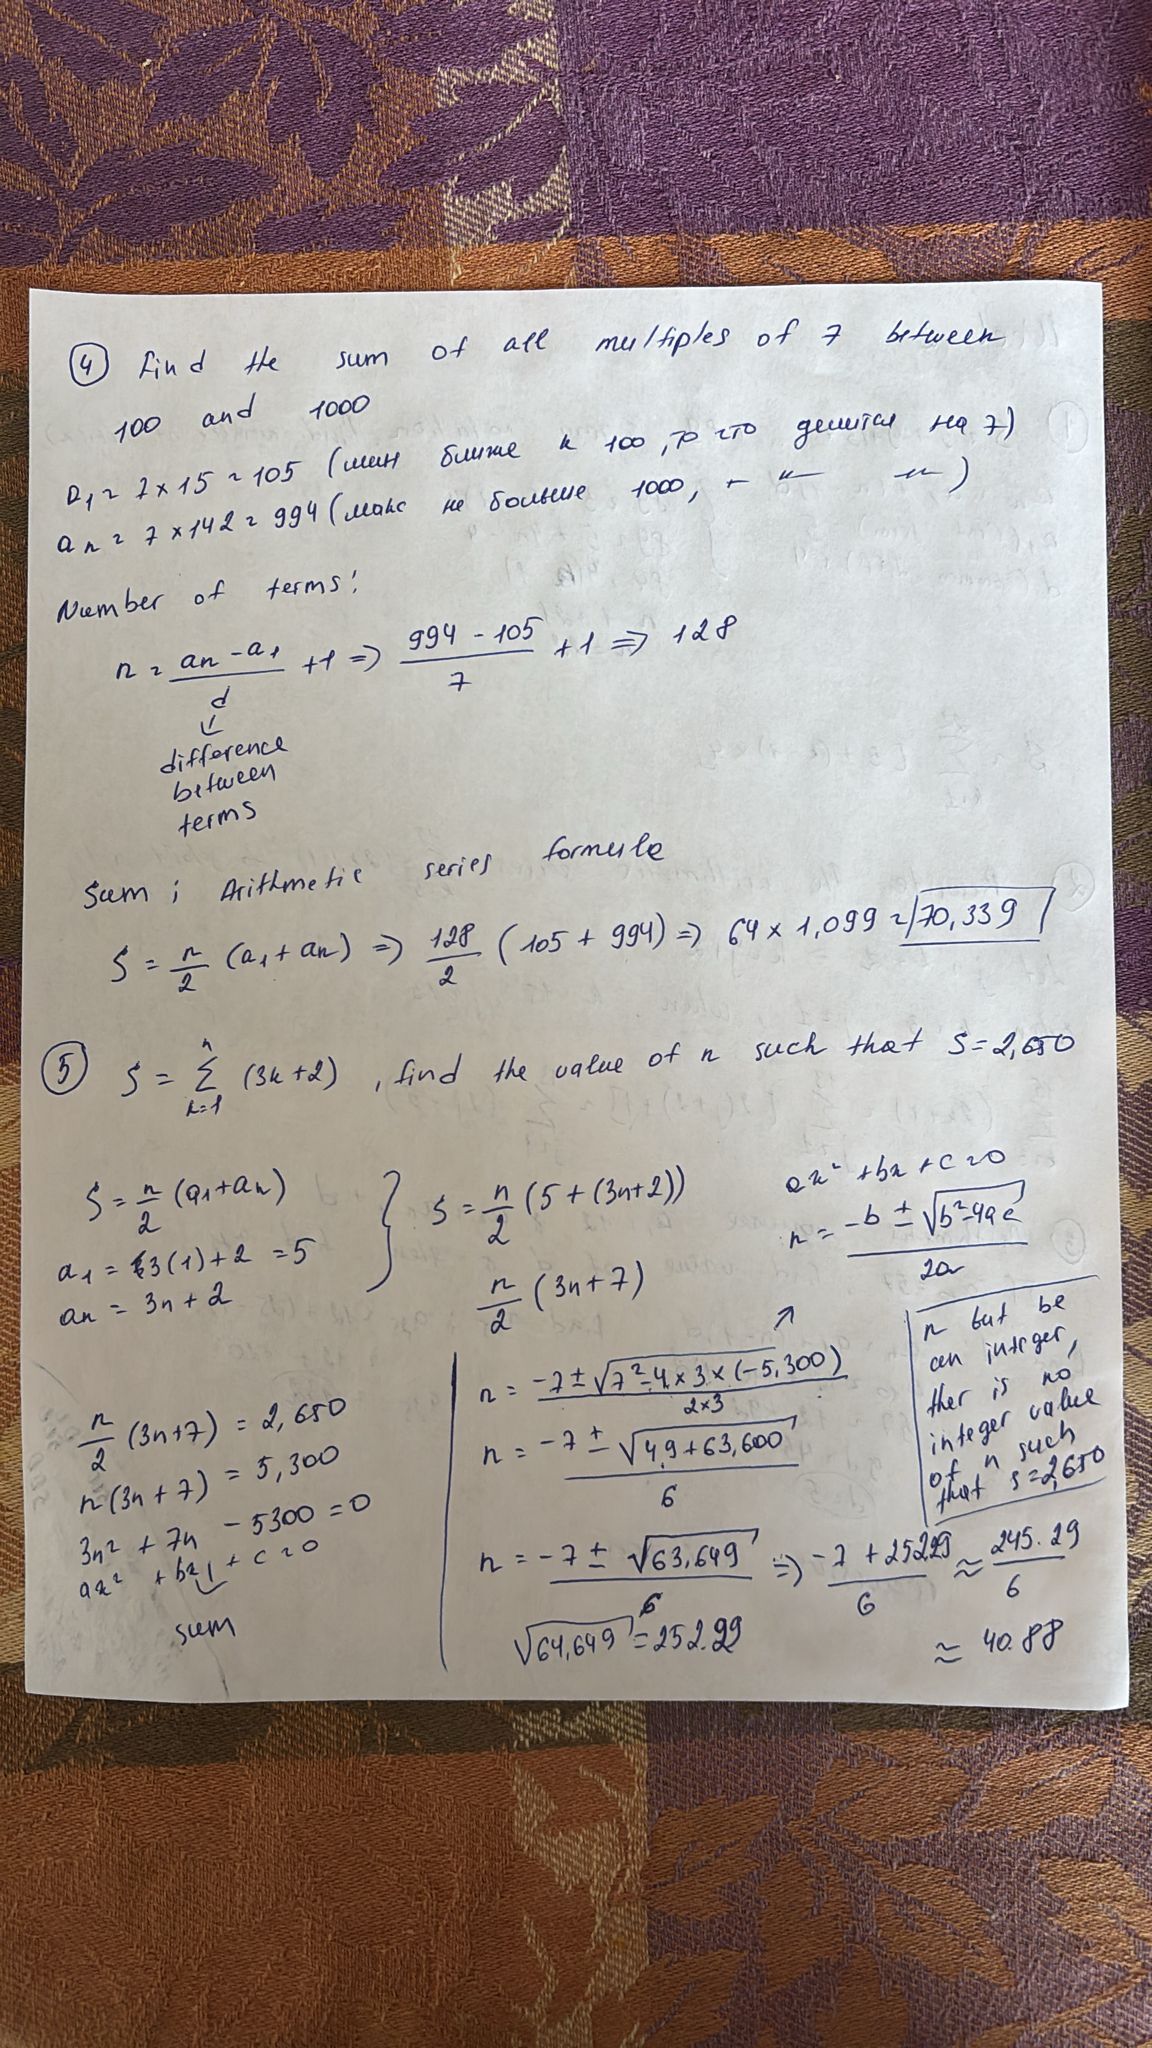 ④ Find the sum of all multiples of 7 between
100 and 1000
a₁ = 7 × 15 = 105 (мин ближе к 100, то что делится на 7)
aₙ = 7 × 142 = 994 (макс не больше 1000, — " — " —)
Number of terms:
n = (aₙ - a₁)/d + 1 => (994 - 105)/7 + 1 => 128
↓
difference
between
terms
Sum ; Arithmetic series formula
S = n/2 (a₁ + aₙ) => 128/2 (105 + 994) => 64 × 1,099 = 70,339
⑤ S = Σ (k=1 to n) (3k+2) , find the value of n such that S = 2,650
S = n/2 (a₁ + aₙ)
a₁ = 3(1) + 2 = 5
aₙ = 3n + 2
S = n/2 (5 + (3n+2))
n/2 (3n + 7)
ax² + bx + c = 0
n = (-b ± √(b² - 4ac))/2a
n/2 (3n+7) = 2,650
n(3n + 7) = 5,300
3n² + 7n - 5300 = 0
ax² + bx + c = 0
sum
n = (-7 ± √(7² - 4 × 3 × (-5,300)))/(2×3)
n = (-7 ± √(49 + 63,600))/6
n = (-7 ± √63,649)/6 => (-7 + 252.29)/6 ≈ 245.29/6
√64,649 = 252.29
≈ 40.88
n but be
an integer,
ther is no
integer value
of n such
that S = 2,650